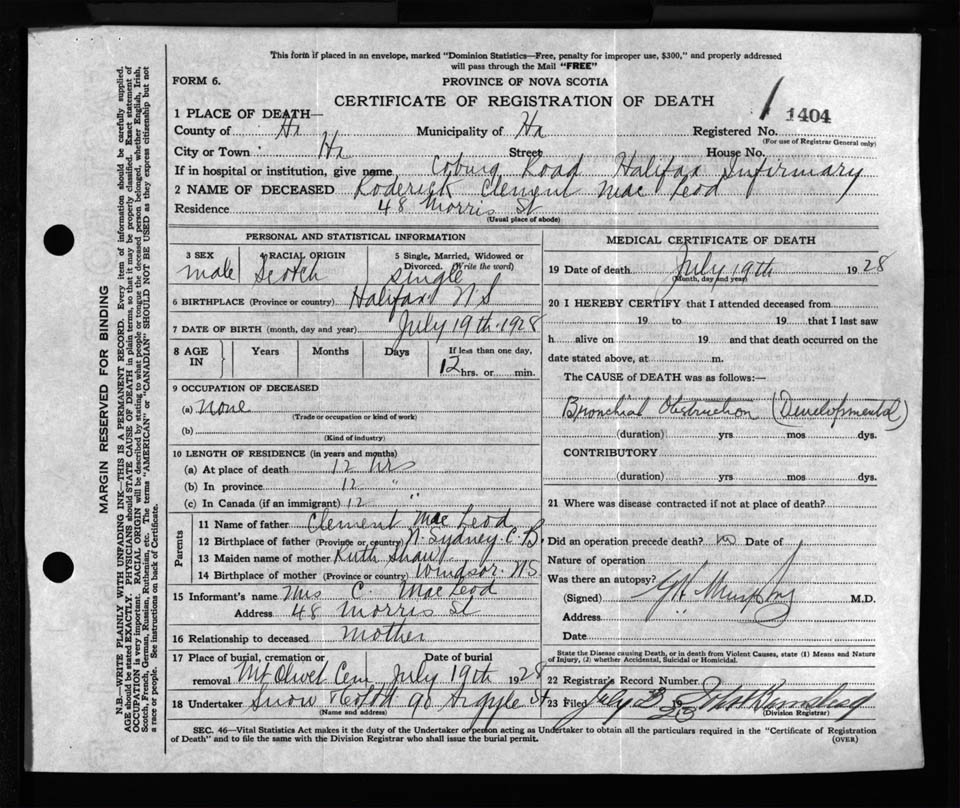 This form if placed in an envelope, marked "Dominion Statistics—Free, penalty for improper use, $300," and properly addressed
will pass through the Mail "FREE"
FORM 6.
PROVINCE OF NOVA SCOTIA
CERTIFICATE OF REGISTRATION OF DEATH
1404
1 PLACE OF DEATH—
County of Hx Municipality of Hx Registered No.
(For use of Registrar General only)
City or Town Hx Street House No.
If in hospital or institution, give name Coburg Road Halifax Infirmary
2 NAME OF DECEASED Roderick Clement Mac Leod
Residence 48 Morris St
(Usual place of abode)
PERSONAL AND STATISTICAL INFORMATION
3 SEX 4 RACIAL ORIGIN 5 Single, Married, Widowed or Divorced. (Write the word)
male Scotch single
6 BIRTHPLACE (Province or country) Halifax N S
7 DATE OF BIRTH (month, day and year) July 19th 1928
8 AGE IN Years Months Days If less than one day,
12 hrs. or min.
9 OCCUPATION OF DECEASED
(a) none
(Trade or occupation or kind of work)
(b)
(Kind of industry)
10 LENGTH OF RESIDENCE (in years and months)
(a) At place of death 12 hrs
(b) In province 12 "
(c) In Canada (if an immigrant) 12 "
Parents
11 Name of father Clement Mac Leod
12 Birthplace of father (Province or country) N. Sydney C. B.
13 Maiden name of mother Ruth Shaw
14 Birthplace of mother (Province or country) Windsor NS
15 Informant's name Mrs C. Mac Leod
Address 48 Morris St
16 Relationship to deceased mother
17 Place of burial, cremation or removal Date of burial
Mt Olivet Cem July 19th 1928
18 Undertaker Snow & Co Ltd 90 Argyle St
(Name and address)
MEDICAL CERTIFICATE OF DEATH
19 Date of death July 19th 1928
(Month, day and year)
20 I HEREBY CERTIFY that I attended deceased from
19 to 19 that I last saw
h alive on 19 and that death occurred on the
date stated above, at m.
The CAUSE of DEATH was as follows:—
Bronchial Obstruction (Developmental)
(duration) yrs mos dys.
CONTRIBUTORY
(duration) yrs mos dys.
21 Where was disease contracted if not at place of death?
Did an operation precede death? no Date of
Nature of operation
Was there an autopsy?
(Signed) G H Murphy M.D.
Address
Date
State the Disease causing Death, or in death from Violent Causes, state (1) Means and Nature of Injury, (2) whether Accidental, Suicidal or Homicidal.
22 Registrar's Record Number
23 Filed July 19
(Division Registrar)
SEC. 46—Vital Statistics Act makes it the duty of the Undertaker or person acting as Undertaker to obtain all the particulars required in the "Certificate of Registration
of Death" and to file the same with the Division Registrar who shall issue the burial permit.
(OVER)
MARGIN RESERVED FOR BINDING
N.B.—WRITE PLAINLY WITH UNFADING INK—THIS IS A PERMANENT RECORD. Every item of information should be carefully supplied.
AGE should be stated EXACTLY. PHYSICIANS should STATE CAUSE OF DEATH in plain terms, so that it may be properly classified. Exact statement of
OCCUPATION is very important. RACIAL ORIGIN will be described by stating to what people or tongue the deceased person belonged, whether English, Irish,
Scotch, French, German, Russian, Ruthenian, etc. The terms "AMERICAN" or "CANADIAN" SHOULD NOT BE USED as they express citizenship but not
a race or people. See instructions on back of Certificate.